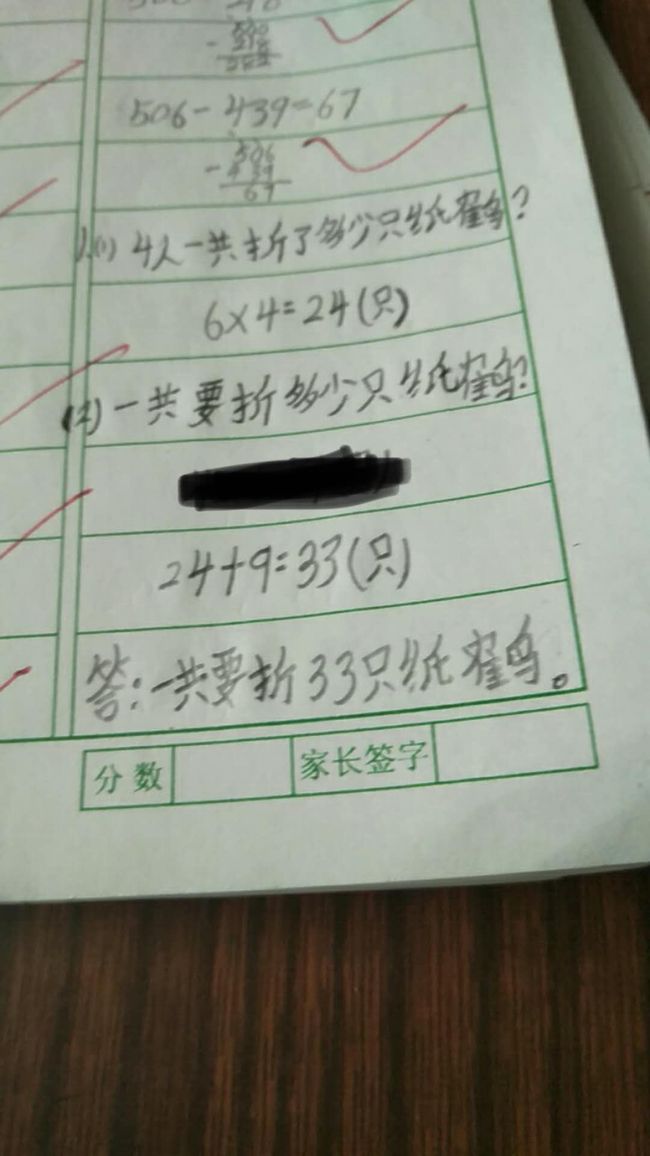 506-439=67
506
-439
67
1.(1) 4人一共折了多少只纸鹤?
6×4=24(只)
(2)一共要折多少只纸鹤?
24+9=33(只)
答:一共要折33只纸鹤。
分数 家长签字